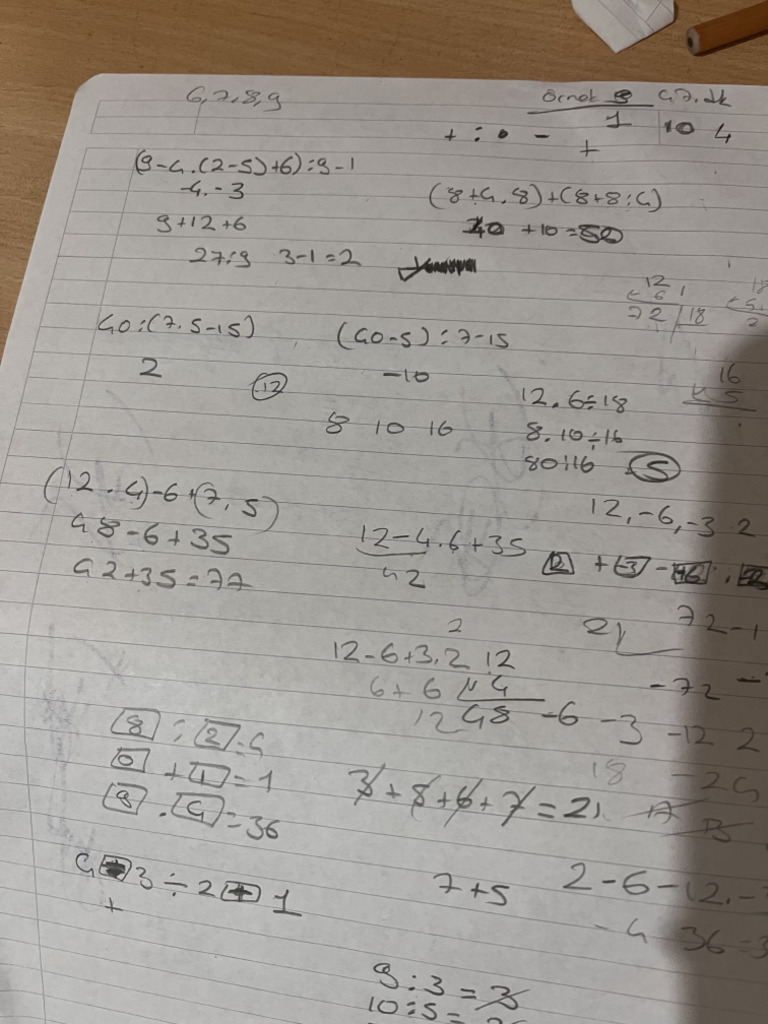 6,7,8,9
Örnek
+ : • - 1 10 4
+
(9-4.(2-5)+6):9-1
-4.-3
9+12+6
27:9 3-1=2
(8+4.8)+(8+8:4)
40 +10=50
12
x 6
72 18
40:(7.5-15)
2
(40-5):7-15
-10
12
16
x 5
12.6÷18
8 10 16
8.10÷16
80÷16 5
(12.4)-6+(7.5)
48-6+35
42+35=77
12-4.6+35
42
12,-6,-3 2
12 + -3 -
72-1
2
12-6+3.2 12
6+6 x 4
12 48 -6 -3 -12 2
-72 -
8 : 2 = 4
0 + 1 = 1
9 . 4 = 36
18 -24
3+8+6+7=21
4 3÷2 1
+
7+5
2-6-12.-
-4 36=3
9:3=3
10:5=